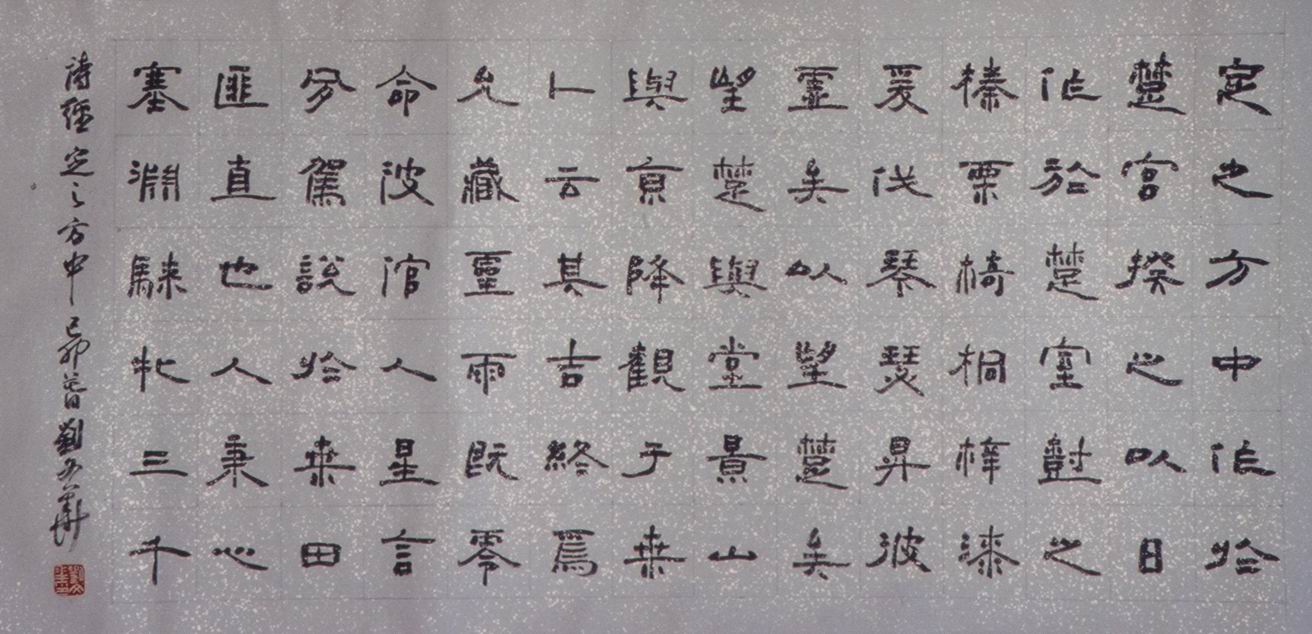 定之方中作於
楚宮揆之以日
作於楚室尌之
榛栗椅桐梓漆
爰伐琴瑟昇彼
虛矣以望楚矣
望楚與堂景山
與京降觀于桒
卜云其吉終焉
允藏靈雨既零
命彼倌人星言
夙駕說於桒田
匪直也人秉心
塞淵騋牝三千
詩經定之方中 己卯春劉文華